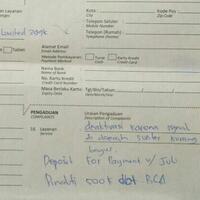 Kota
City
Kode Pos
Zip Code
Telepon Seluler
Mobile Number
Telepon (Rumah)
Telephone (Home)
Alamat Email
Email Address
Metode Pembayaran
Payment Method
Tunai
Cash
Kartu Kredit
Credit Card
Nama Bank
Name of Bank
No. Kartu Kredit
Credit Card Number
Masa Berlaku Kartu
Tgl/Bln/Tahun
PENGADUAN
COMPLAINTS
Uraian Pengaduan
Description of Complaints
Layanan
Service
deaktivasi karena signal
di daerah sunter kurang
bagus.
Deposit for Payment
Pinalti 500k dbt